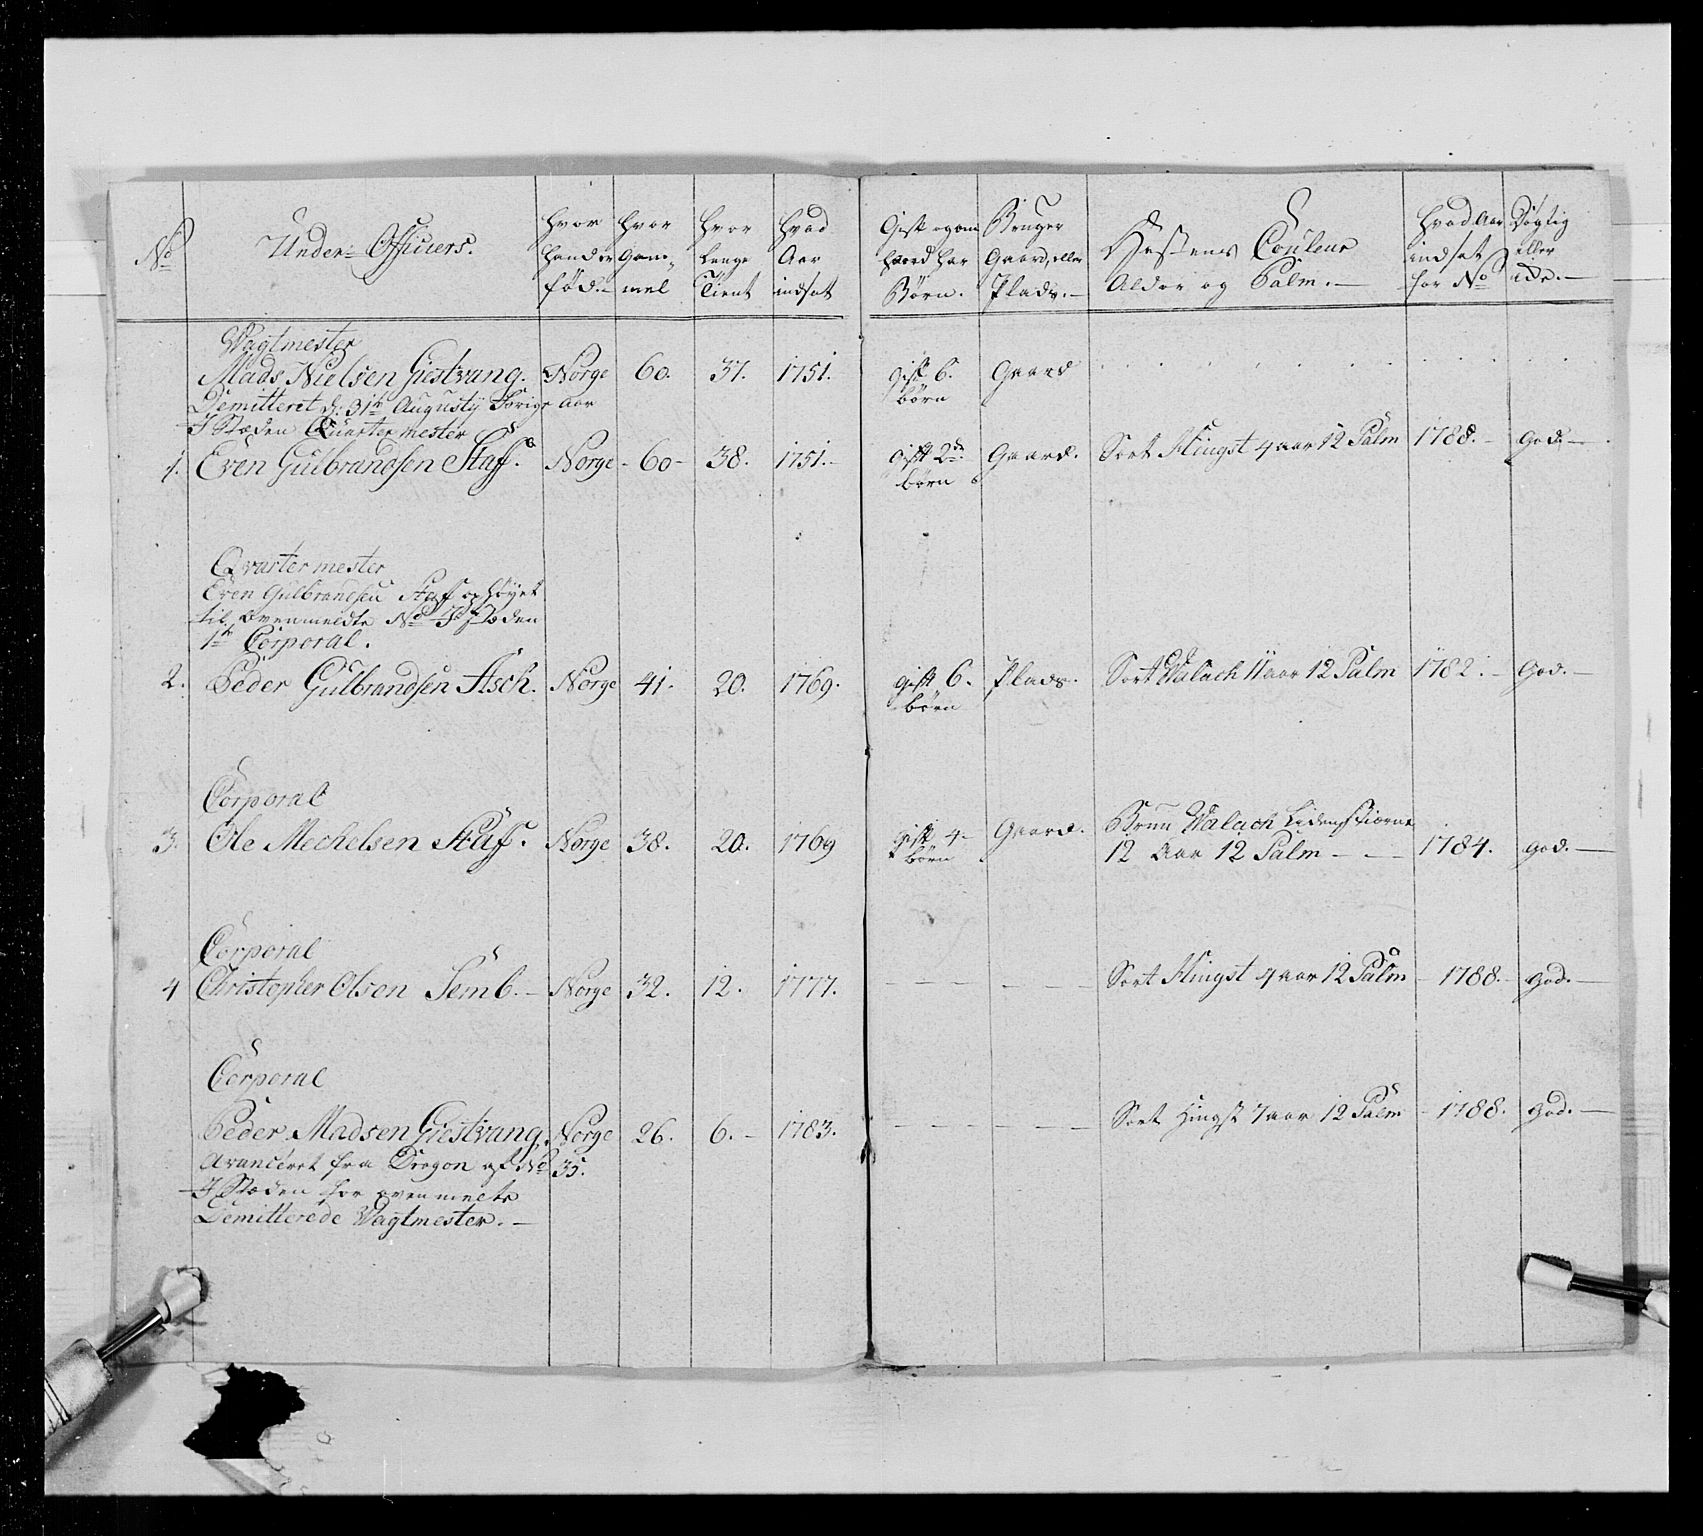 No
Under Officiers.
hvor hand er fød.
hvor Gam-mel
hvor Lenge Tient
hvad Aar indsat
Gift og om hand har Børn.
Bruger Gaard, eller Plads.
Hestens Couleur Alder og Palm.
hvad Aar indsat for No
Døgtig eller ide.
Vagtmester
Mads Nielsen Giestvang. Norge 60. 37. 1751. gift 6. børn Gaard
Demitteret d: 31te Augustÿ Forige Aar
I Stæden Quartermester
1. Even Gulbrandsen Staff. Norge - 60 - 38. 1751. gift 2de børn Gaard. Sort Hingst 4 aar 12 Palm 1788. god.
Qvartermester
Even Gulbrandsen Staff ophøyet
til ovenmeldte No I Stæden
1te Corporal.
2. Peder Gulbrandsen Asch. Norge 41. 20. 1769. gift 6. børn Plads. Sort Valach 11 aar 12 Palm 1782. god.
Corporal
3. Ole Mechelsen Staff. Norge 38. 20. 1769 gift 4 børn Gaard. Brun Valach Liden Stierne
12 Aar 12 Palm 1784. god.
Corporal
4 Christopher Olsen Semb. Norge 32. 12. 1777. Sort Hingst 4 aar 12 Palm 1788. god.
Corporal
Peder Madsen Giestvang. Norge 26. 6. 1783. Sort Hingst 7 aar 12 Palm 1788. god.
Avanceret fra Dragon af No 35.
I Stæden for ovenmelte
Demitterede Vagtmester.